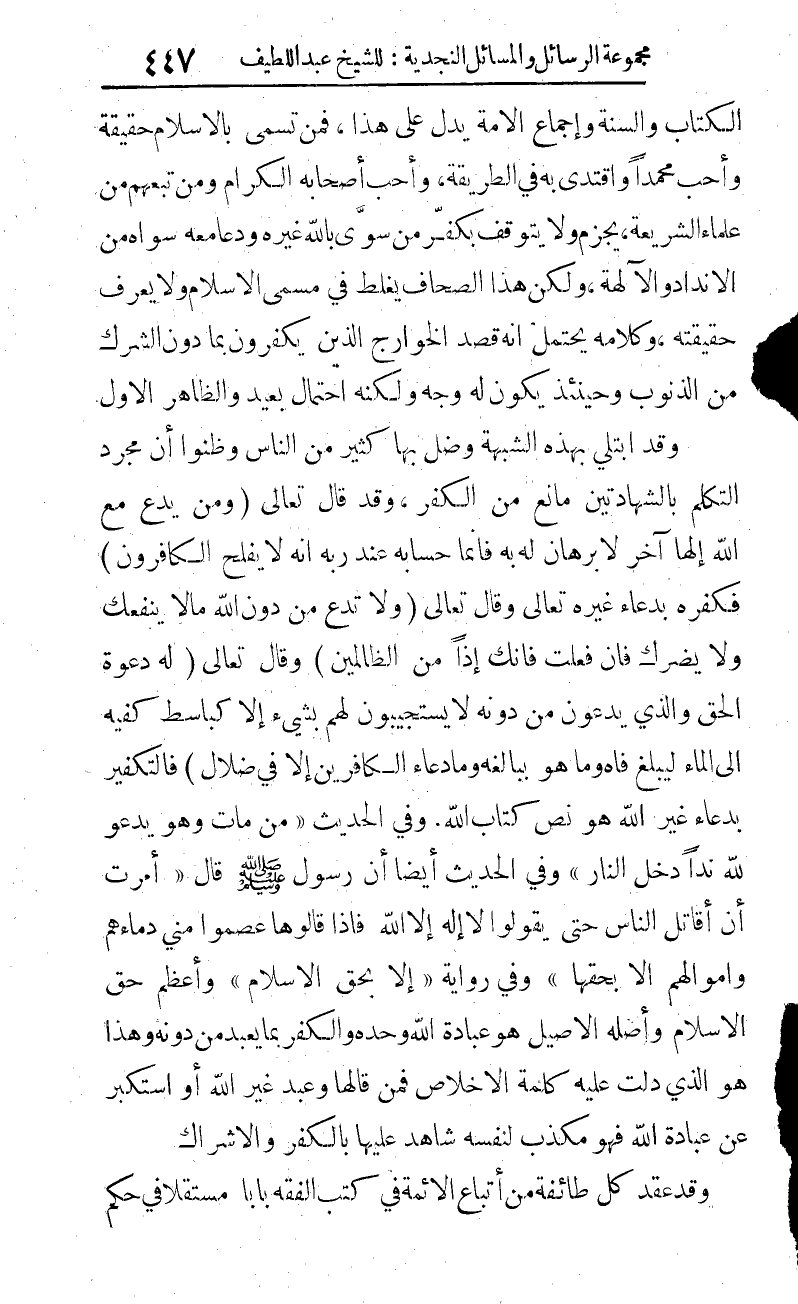 مجموعة الرسائل والمسائل النجدية : للشيخ عبداللطيف ٤٤٧
الكتاب والسنة وإجماع الامة يدل على هذا ، فمن تسمى بالاسلام حقيقة
وأحب محمداً واقتدى به في الطريقة، وأحب أصحابه الكرام ومن تبعهم من
علماء الشريعة، يجزم ولا يتوقف بكفر من سوَّى بالله غيره ودعا معه سواه من
الانداد والآلهة ،ولكن هذا الصحاف يغلط في مسمى الاسلام ولا يعرف
حقيقته ،وكلامه يحتمل انه قصد الخوارج الذين يكفرون بما دون الشرك
من الذنوب وحينئذ يكون له وجه ولكنه احتمال بعيد والظاهر الاول
وقد ابتلي بهذه الشبهة وضل بها كثير من الناس وظنوا أن مجرد
التكلم بالشهادتين مانع من الكفر ، وقد قال تعالى ( ومن يدع مع
الله إلها آخر لا برهان له به فانما حسابه عند ربه انه لا يفلح الكافرون )
فكفره بدعاء غيره تعالى وقال تعالى ( ولا تدع من دون الله مالا ينفعك
ولا يضرك فان فعلت فانك إذاً من الظالمين ) وقال تعالى ( له دعوة
الحق والذي يدعون من دونه لا يستجيبون لهم بشيء إلا كباسط كفيه
الى الماء ليبلغ فاه وما هو ببالغه وما دعاء الكافرين إلا في ضلال ) فالتكفير
بدعاء غير الله هو نص كتاب الله. وفي الحديث « من مات وهو يدعو
لله نداً دخل النار » وفي الحديث أيضا أن رسول ﷺ قال « أمرت
أن أقاتل الناس حتى يقولوا لا إله إلا الله فاذا قالوها عصموا مني دماءهم
واموالهم الا بحقها » وفي رواية « إلا بحق الاسلام » وأعظم حق
الاسلام وأصله الاصيل هو عبادة الله وحده والكفر بما يعبد من دونه وهذا
هو الذي دلت عليه كلمة الاخلاص فمن قالها وعبد غير الله أو استكبر
عن عبادة الله فهو مكذب لنفسه شاهد عليها بالكفر والاشراك
وقد عقد كل طائفة من أتباع الائمة في كتب الفقه بابا مستقلا في حكم